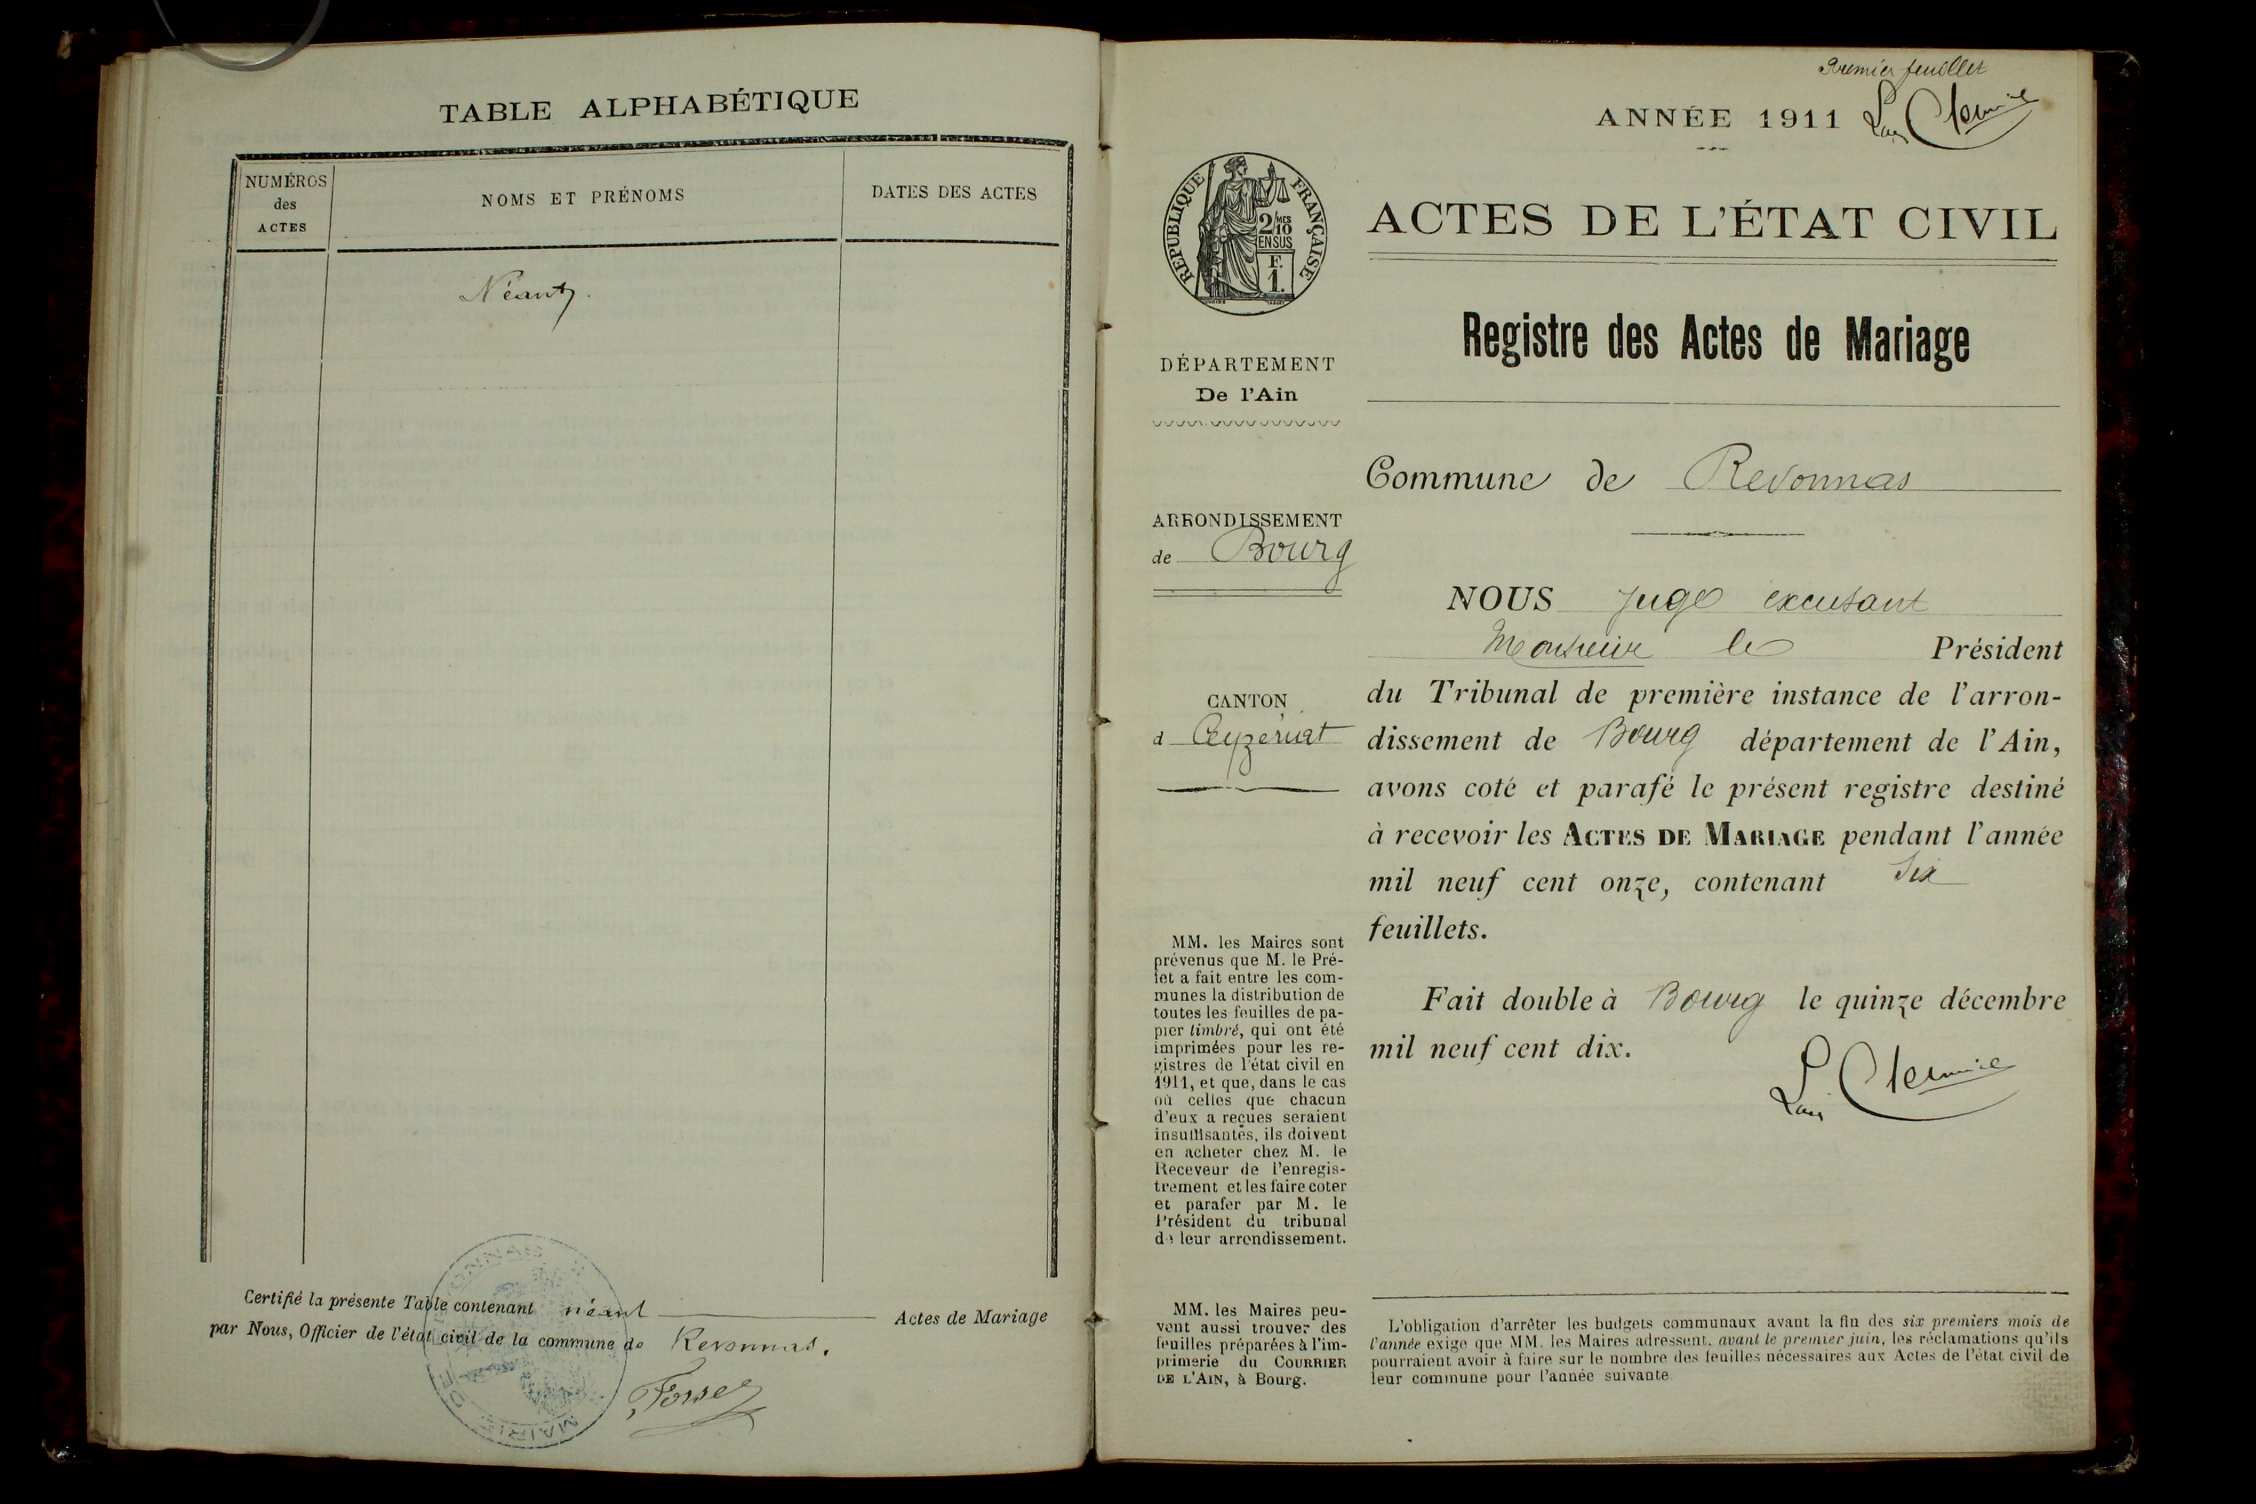 TABLE ALPHABÉTIQUE
NUMÉROS
des
ACTES
NOMS ET PRÉNOMS
DATES DES ACTES
Néant.
Certifié la présente Table contenant néant Actes de Mariage
par Nous, Officier de l'état civil de la commune de Revonnas.
MAIRIE DE REVONNAS
Premier feuillet
ANNÉE 1911
RÉPUBLIQUE FRANÇAISE
2/10 MES
EN SUS
F.
1.
ACTES DE L'ÉTAT CIVIL
Registre des Actes de Mariage
DÉPARTEMENT
De l'Ain
Commune de Revonnas
ARRONDISSEMENT
de Bourg
NOUS Juge excusant
Monsieur le Président
CANTON
d Ceyzériat
du Tribunal de première instance de l'arron-
dissement de Bourg département de l'Ain,
avons coté et parafé le présent registre destiné
à recevoir les ACTES DE MARIAGE pendant l'année
mil neuf cent onze, contenant Six
feuillets.
Fait double à Bourg le quinze décembre
mil neuf cent dix.
MM. les Maires sont
prévenus que M. le Pré-
fet a fait entre les com-
munes la distribution de
toutes les feuilles de pa-
pier timbré, qui ont été
imprimées pour les re-
gistres de l'état civil en
1911, et que, dans le cas
où celles que chacun
d'eux a reçues seraient
insuffisantes, ils doivent
en acheter chez M. le
Receveur de l'enregis-
trement et les faire coter
et parafer par M. le
Président du tribunal
de leur arrondissement.
MM. les Maires peu-
vent aussi trouver des
feuilles préparées à l'im-
primerie du COURRIER
DE L'AIN, à Bourg.
L'obligation d'arrêter les budgets communaux avant la fin des six premiers mois de
l'année exige que MM. les Maires adressent, avant le premier juin, les réclamations qu'ils
pourraient avoir à faire sur le nombre des feuilles nécessaires aux Actes de l'état civil de
leur commune pour l'année suivante